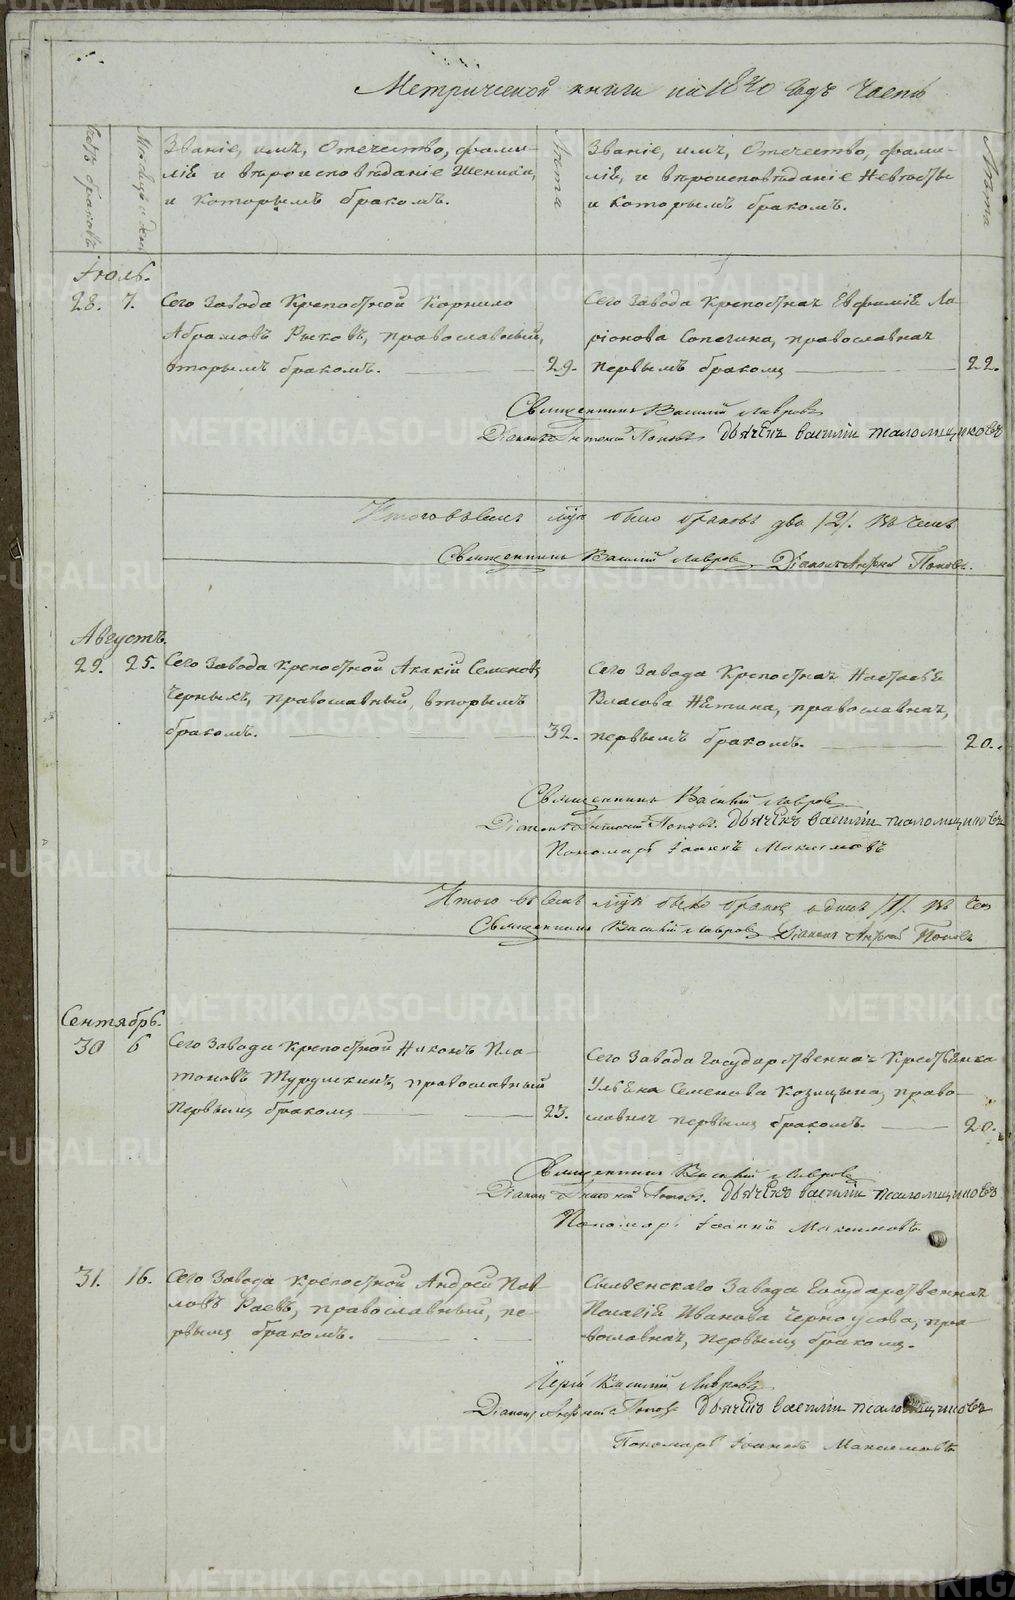 Метрической книги на 1840 годъ часть
Счетъ браковъ
Мѣсяцъ и дни
Званіе, имя, Отечество, фами-
ліе и вѣроисповѣданіе Жениха,
и которымъ бракомъ.
Лѣта
Званіе, имя, Отечество, фами-
ліе, и вѣроисповѣданіе Невѣсты
и которымъ бракомъ.
Лѣта
Іюль.
28. 7. Сего Завода Крепостной Корнило
Абрамовъ Рыковъ, православный,
вторымъ бракомъ. 29.
Сего Завода крепостная Евфимія Ла-
ріонова Сопегина, православная
первымъ бракомъ 22.
Священникъ Василій Лавровъ
Діаконъ Антоній Поповъ Дьячекъ василіи жаломщиковъ
Итого въ семъ было браковъ два /2/. въ чемъ
Священникъ Василій Лавровъ Діаконъ Поповъ.
Августъ.
29. 25. Сего Завода крепостной Акакій Семеновъ
Черныхъ, православный, вторымъ
бракомъ. 32.
Сего Завода Крепостная Настасья
Власова Нѣтина, православная,
первымъ бракомъ. 20.
Священникъ Василій Лавровъ
Діаконъ Антоній Поповъ. Дьячекъ василіи жаломщиковъ
Пономарь Іоаннъ Максимовъ
Итого въ семъ было браковъ одинъ /1/. въ чем
Священникъ Василій Лавровъ Діаконъ Поповъ
Сентябрь.
30 6 Сего Завода Крепостной Никонъ Пла-
тоновъ Турушкинъ, православный
Первымъ бракомъ 23.
Сего Завода Государственная Крестьянка
Ульяна Семенова Козицына, право-
славная первымъ бракомъ. 20.
Священникъ Василій Лавровъ
Діаконъ Антоній Поповъ. Дьячекъ василіи жаломщиковъ
Пономарь Іоаннъ Максимовъ.
31. 16. Сего Завода крепостной Андрей Пав-
ловъ Раевъ, православный, пе-
рвымъ бракомъ.
Сылвенскаго Завода Государственная
Пелагія Иванова Черноусова, пра-
вославная, первымъ бракомъ.
Іерей Василій Лавровъ
Діаконъ Поповъ Дьячекъ василіи жаломщиковъ
Пономарь Іоаннъ Максимовъ
METRIKI.GASO-URAL.RU